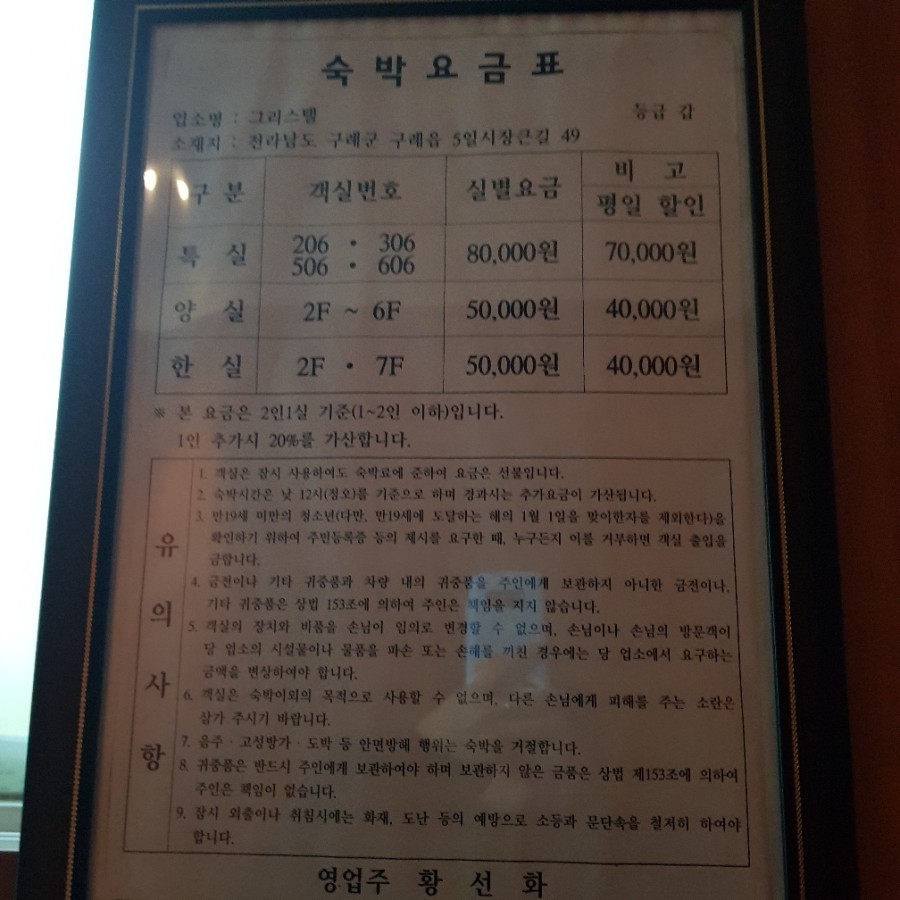 숙박요금표
업소명 : 그리스텔 등급 갑
소재지 : 전라남도 구례군 구례읍 5일시장큰길 49
구분 객실번호 실별요금 비고
평일 할인
특실 206 · 306 80,000원 70,000원
506 · 606
양실 2F ~ 6F 50,000원 40,000원
한실 2F · 7F 50,000원 40,000원
※ 본 요금은 2인1실 기준(1~2인 이하)입니다.
1인 추가시 20%를 가산합니다.
유의사항
1. 객실은 잠시 사용하여도 숙박료에 준하여 요금은 선불입니다.
2. 숙박시간은 낮 12시(정오)를 기준으로 하며 경과시는 추가요금이 가산됩니다.
3. 만19세 미만의 청소년(다만, 만19세에 도달하는 해의 1월 1일을 맞이한자를 제외한다)을
확인하기 위하여 주민등록증 등의 제시를 요구한 때, 누구든지 이를 거부하면 객실 출입을
금합니다.
4. 금전이나 기타 귀중품과 차량 내의 귀중품을 주인에게 보관하지 아니한 금전이나,
기타 귀중품은 상법 153조에 의하여 주인은 책임을 지지 않습니다.
5. 객실의 장치와 비품을 손님이 임의로 변경할 수 없으며, 손님이나 손님의 방문객이
당 업소의 시설물이나 물품을 파손 또는 손해를 끼친 경우에는 당 업소에서 요구하는
금액을 변상하여야 합니다.
6. 객실은 숙박이외의 목적으로 사용할 수 없으며, 다른 손님에게 피해를 주는 소란은
삼가 주시기 바랍니다.
7. 음주 · 고성방가 · 도박 등 안면방해 행위는 숙박을 거절합니다.
8. 귀중품은 반드시 주인에게 보관하여야 하며 보관하지 않은 금품은 상법 제153조에 의하여
주인은 책임이 없습니다.
9. 잠시 외출이나 취침시에는 화재, 도난 등의 예방으로 소등과 문단속을 철저히 하여야
합니다.
영업주 황선화